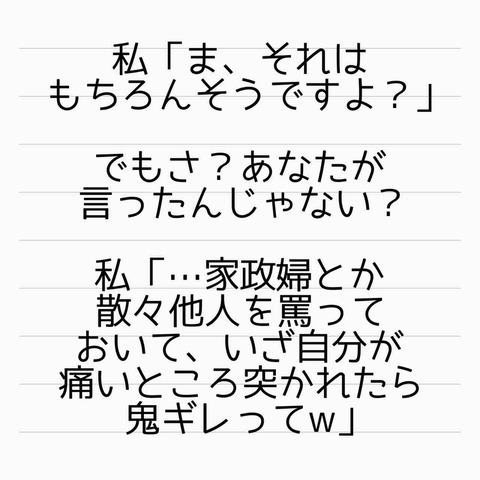 私「ま、それは
もちろんそうですよ？」
でもさ？あなたが
言ったんじゃない？
私「…家政婦とか
散々他人を罵って
おいて、いざ自分が
痛いところ突かれたら
鬼ギレってw」